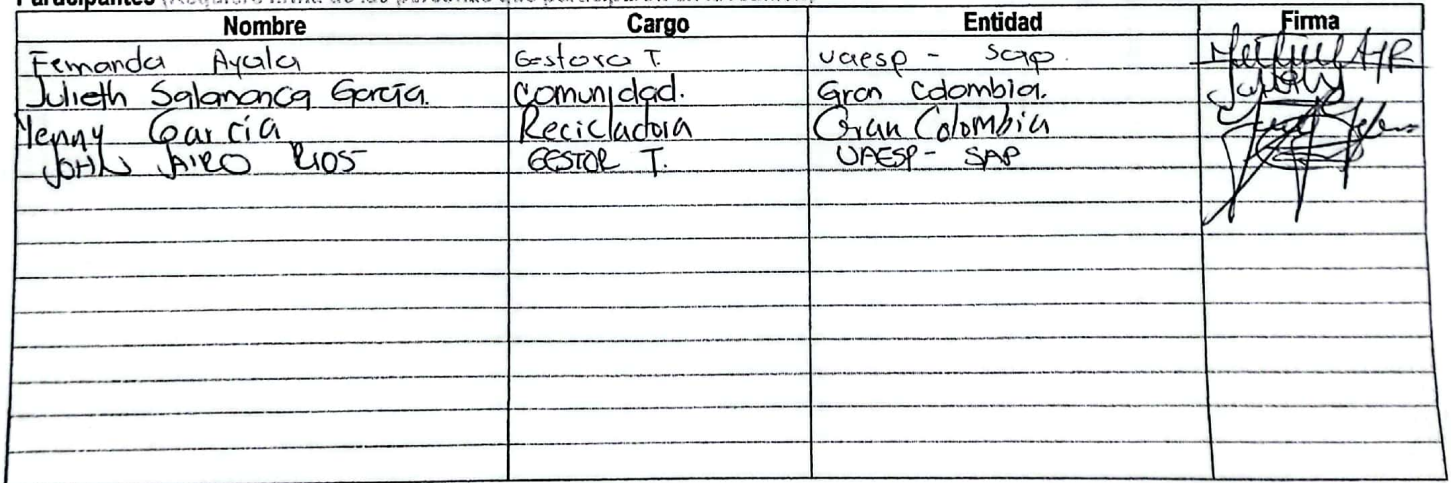 Participantes
Nombre Cargo Entidad Firma
Fernanda Ayala Gestora T. Uaesp - Sap.
Julieth Salamanca García. Comunidad. Gran Colombia.
Yenny García Recicladora Gran Colombia
JOHN JAIRO RIOS GESTOR T. UAESP - SAP